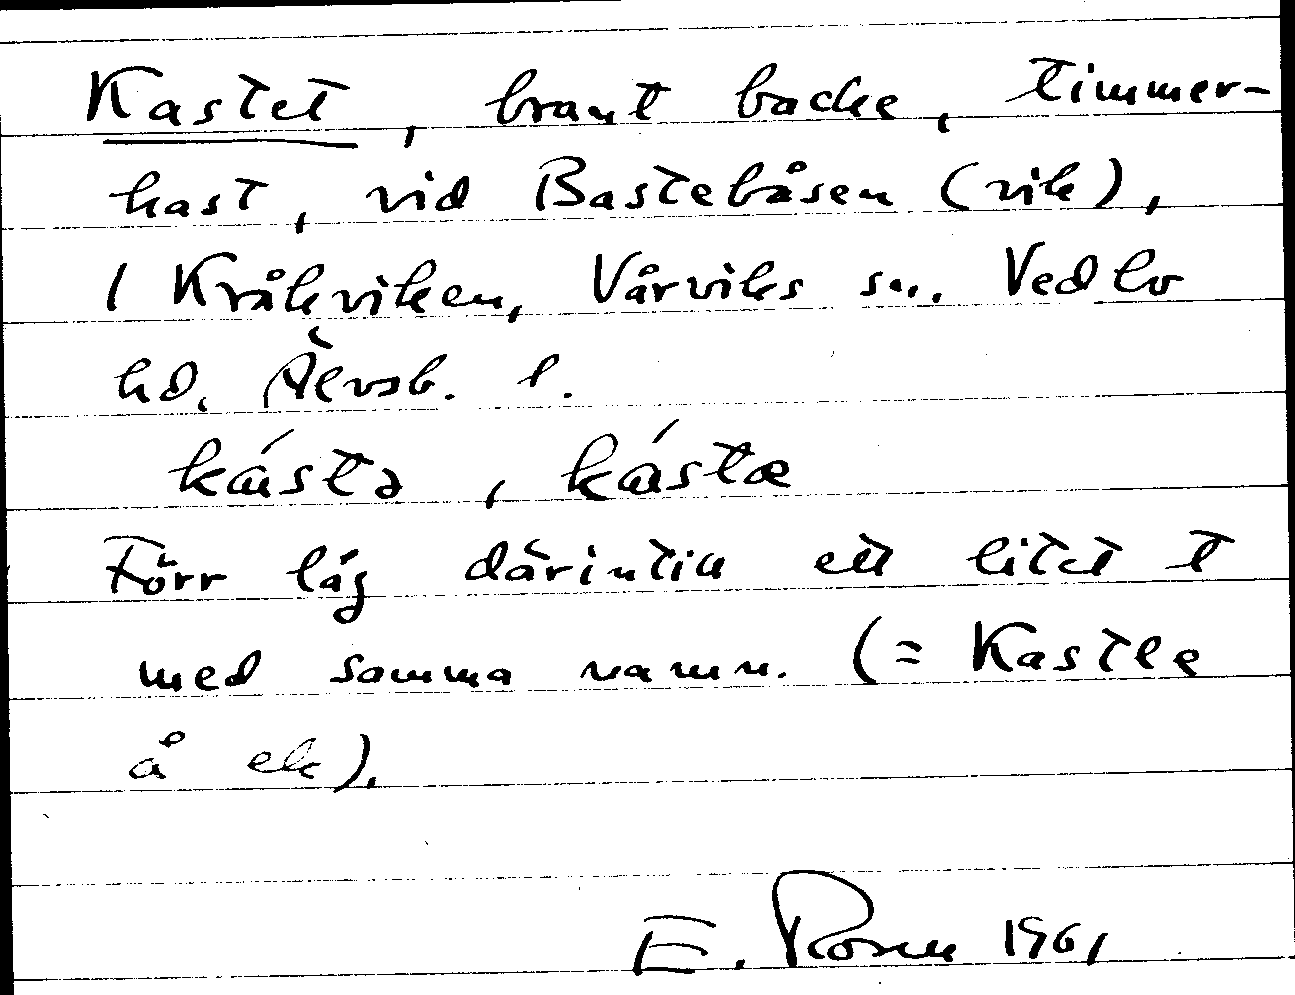 Kastet, brant backe, timmer-
kast, vid Bastebåsen (vik),
i Kråkviken, Vårviks sn. Vedbo
hd. Älvsb. l.
kástə, kástæ
Förr låg därintill ett litet t
med samma namn. (= Kastle
å ek).
E. Rosen 1961